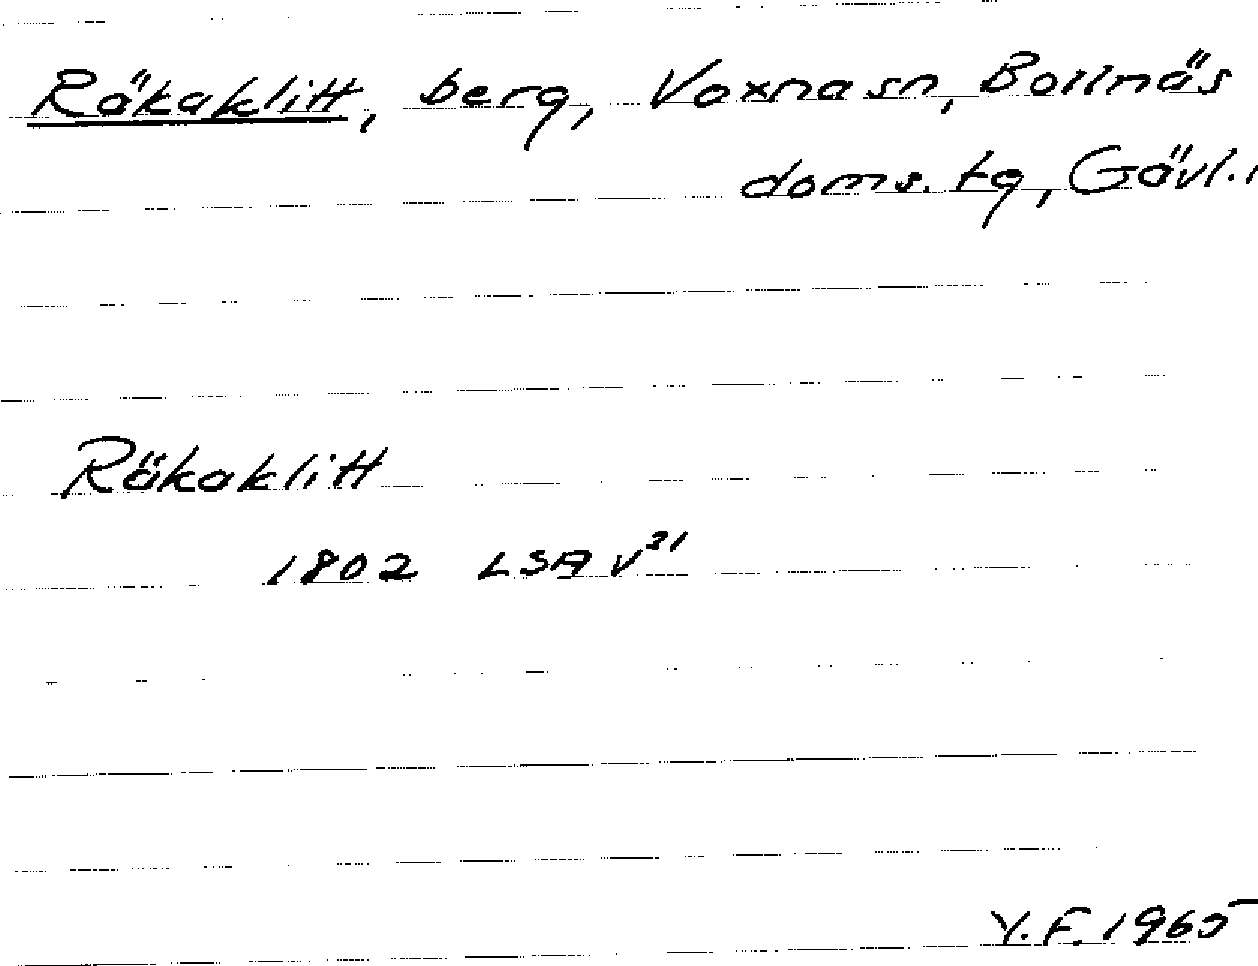 Räkaklitt, berg, Voxna sn, Bollnäs
doms. tg, Gävl. l
Räkaklitt
1802 LSA V31
Y.F. 1965